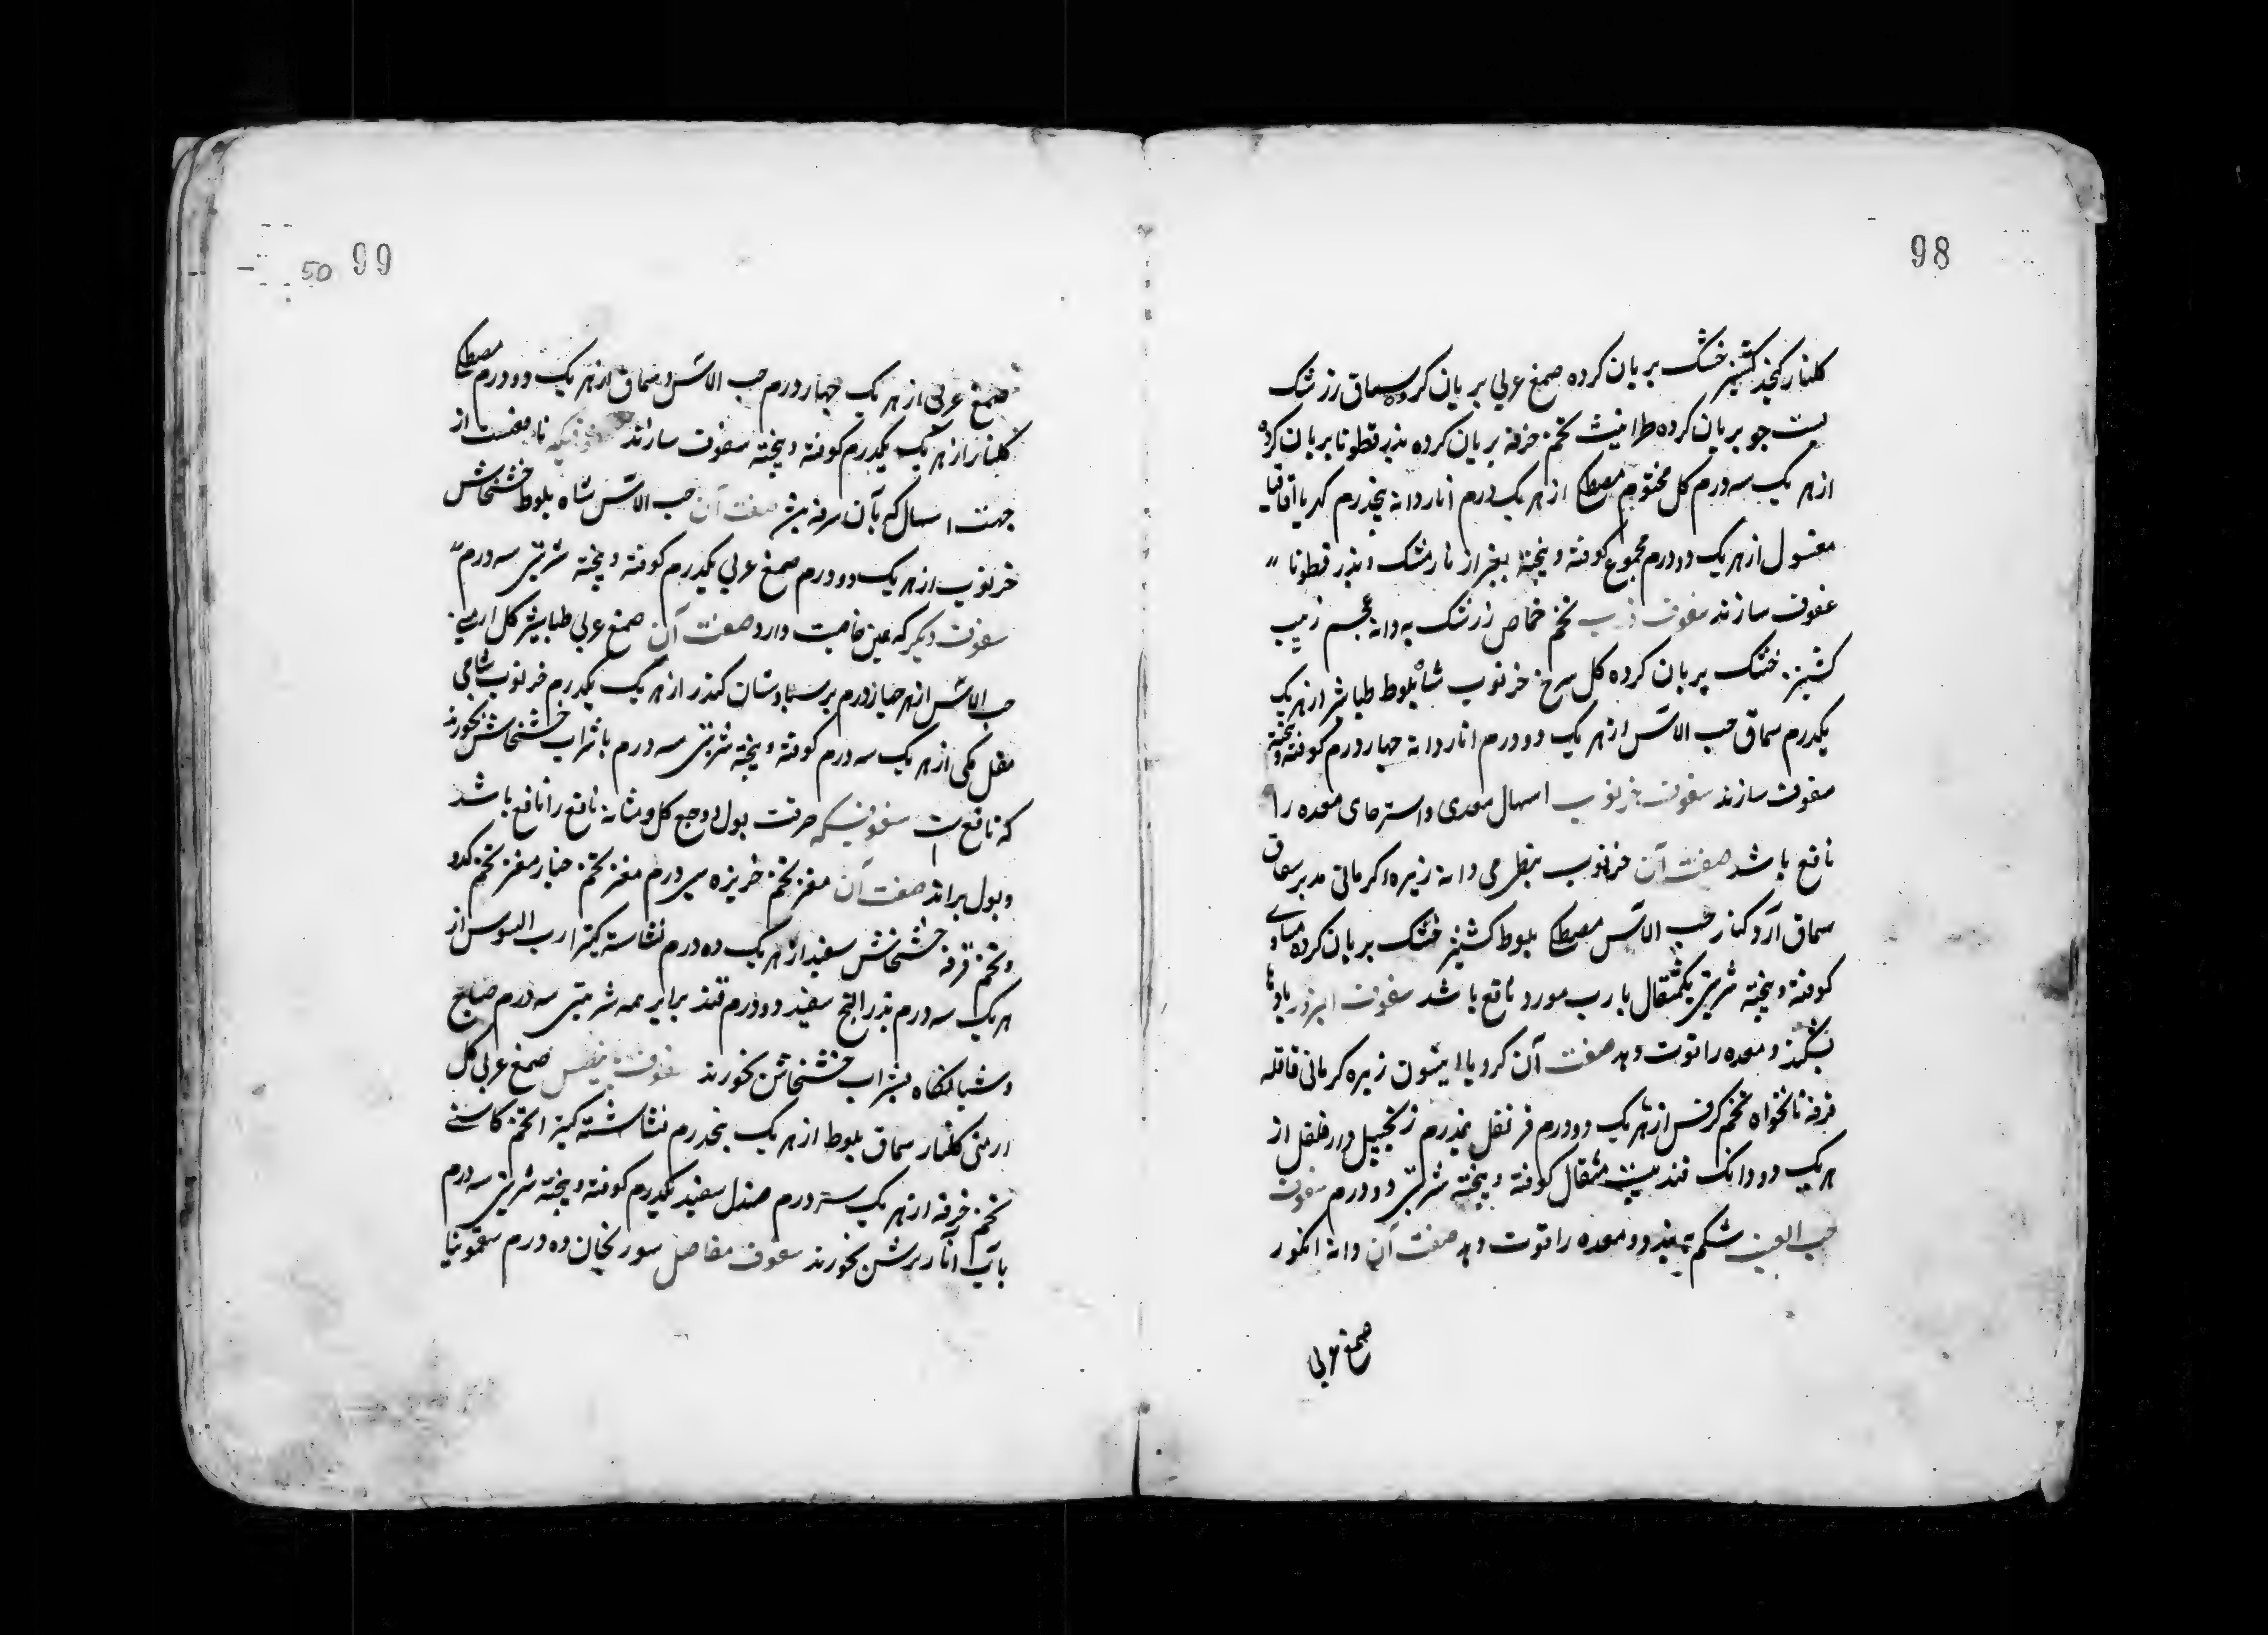 98
کلنار کنجد کشنیز خشک بریان کرده صمغ عربی بریان کرده سماق زرشک
جو بریان کرده طراثیث تخم خرفه بریان کرده بذر قطونا بریان کرده
از هر یک سه درم کل مختوم مصطکی از هر یک درم انار دانه پنجدرم کهربا اقاقیا
مغسول از هر یک دو درم مجموع کوفته و بیخته بغیر از نارمشک و بذر قطونا
سفوف سازند سفوف تخم حماض زرشک به دانه عجم زبیب
کشنیز خشک بریان کرده کل سرخ خرنوب شاه بلوط طباشیر از هر یک
یکدرم سماق حب الاس از هر یک دو درم انار دانه چهار درم کوفته و بیخته
سفوف سازند سفوف خرنوب اسهال معدی و استرخای معده را
نافع باشد صفت آن خرنوب دانه زیره کرمانی مدبر
سماق آرد کنار حب الاس مصطکی بلوط کشنیز خشک بریان کرده مساوی
کوفته و بیخته شربتی یکمثقال با رب مورد نافع باشد سفوف البزور بادها
بشکند و معده را قوت دهد صفت آن کرویا انیسون زیره کرمانی قاقله
قرفه نانخواه تخم کرفس از هر یک دو درم قرنفل نیمدرم زنجبیل دارفلفل از
هر یک دو دانک قند بیست مثقال کوفته و بیخته شربتی دو درم سفوف
حب العنب شکم ببندد و معده را قوت دهد صفت آن دانه انکور
صمغ عربی
50 99
صمغ عربی از هر یک چهار درم حب الاس و سماق از هر یک دو درم مصطکی
کلنار از هر یک یکدرم کوفته و بیخته سفوف سازند سفوفیکه نافعست از
جهت اسهال که بآن سرفه صفت آن حب الاس شاه بلوط خشخاش
خرنوب از هر یک دو درم صمغ عربی یکدرم کوفته و بیخته شربتی سه درم
سفوف دیکر که همین خاصیت دارد صفت آن صمغ عربی طباشیر کل ارمنی
حب الاس از هر چهار درم برسیاوشان کندر از هر یک یکدرم خرنوب شامی
مقل مکی از هر یک سه درم کوفته و بیخته شربتی سه درم با شراب خشخاش بخورند
که نافع است سفوفیکه حرقت بول و وجع کلی و مثانه نافع را نافع باشد
و بول براند صفت آن مغز تخم خربزه سی درم مغز تخم خیار مغز تخم کدو
و تخم خرفه خشخاش سفید از هر یک ده درم نشاسته کتیرا رب السوس از
هر یک سه درم بذر البنج سفید دو درم قند برابر همه شربتی سه درم صباح
و شبانکاه بشراب خشخاش بخورند سفوف صمغ عربی کل
ارمنی کلنار سماق بلوط از هر یک پنجدرم نشاسته کتیرا تخم کاسنی
تخم خرفه از هر یک سه درم صندل سفید یکدرم کوفته و بیخته شربتی سه درم
بآب انار ترش بخورند سفوف مفاصل سورنجان ده درم سقمونیا